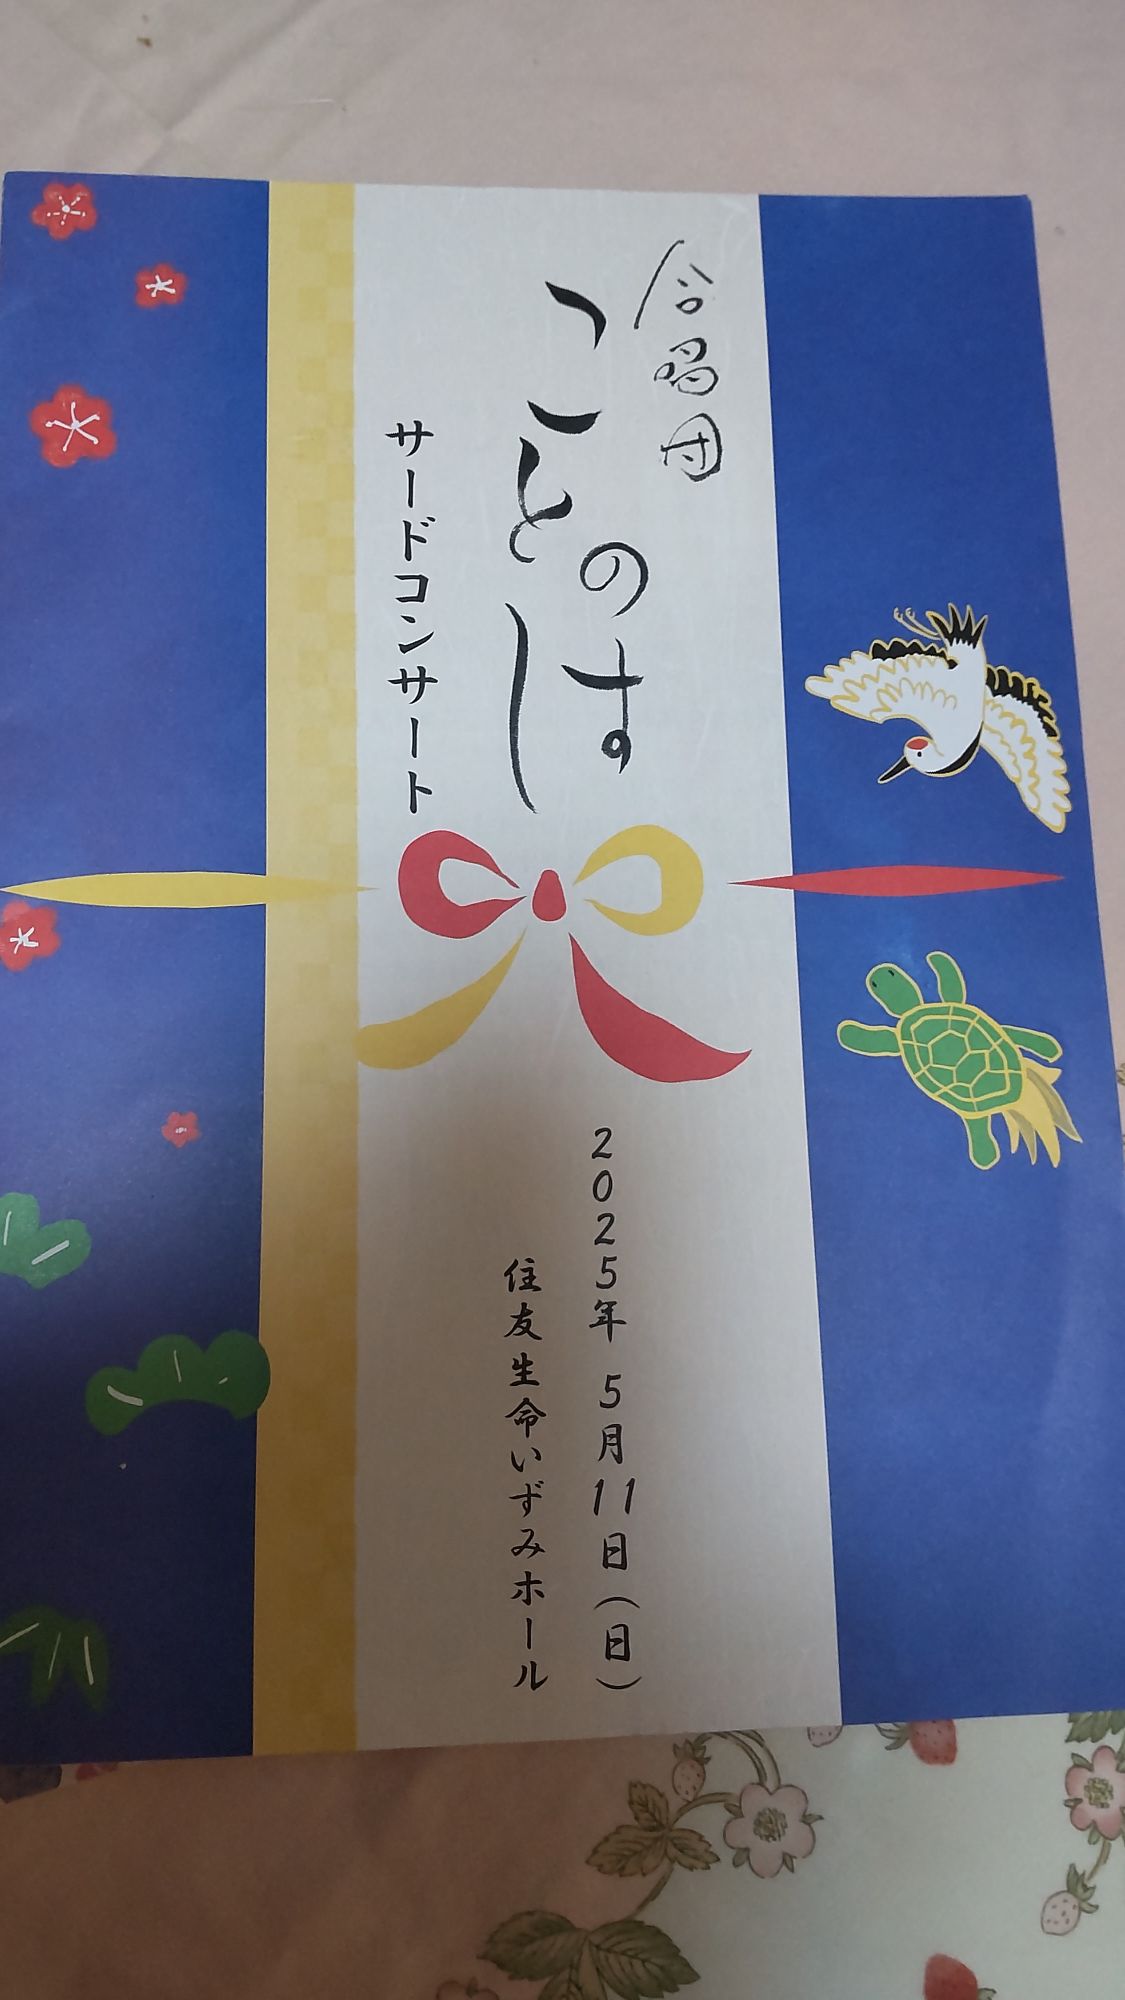 合唱団
ことのは
サードコンサート
2025年 5月11日(日)
住友生命いずみホール